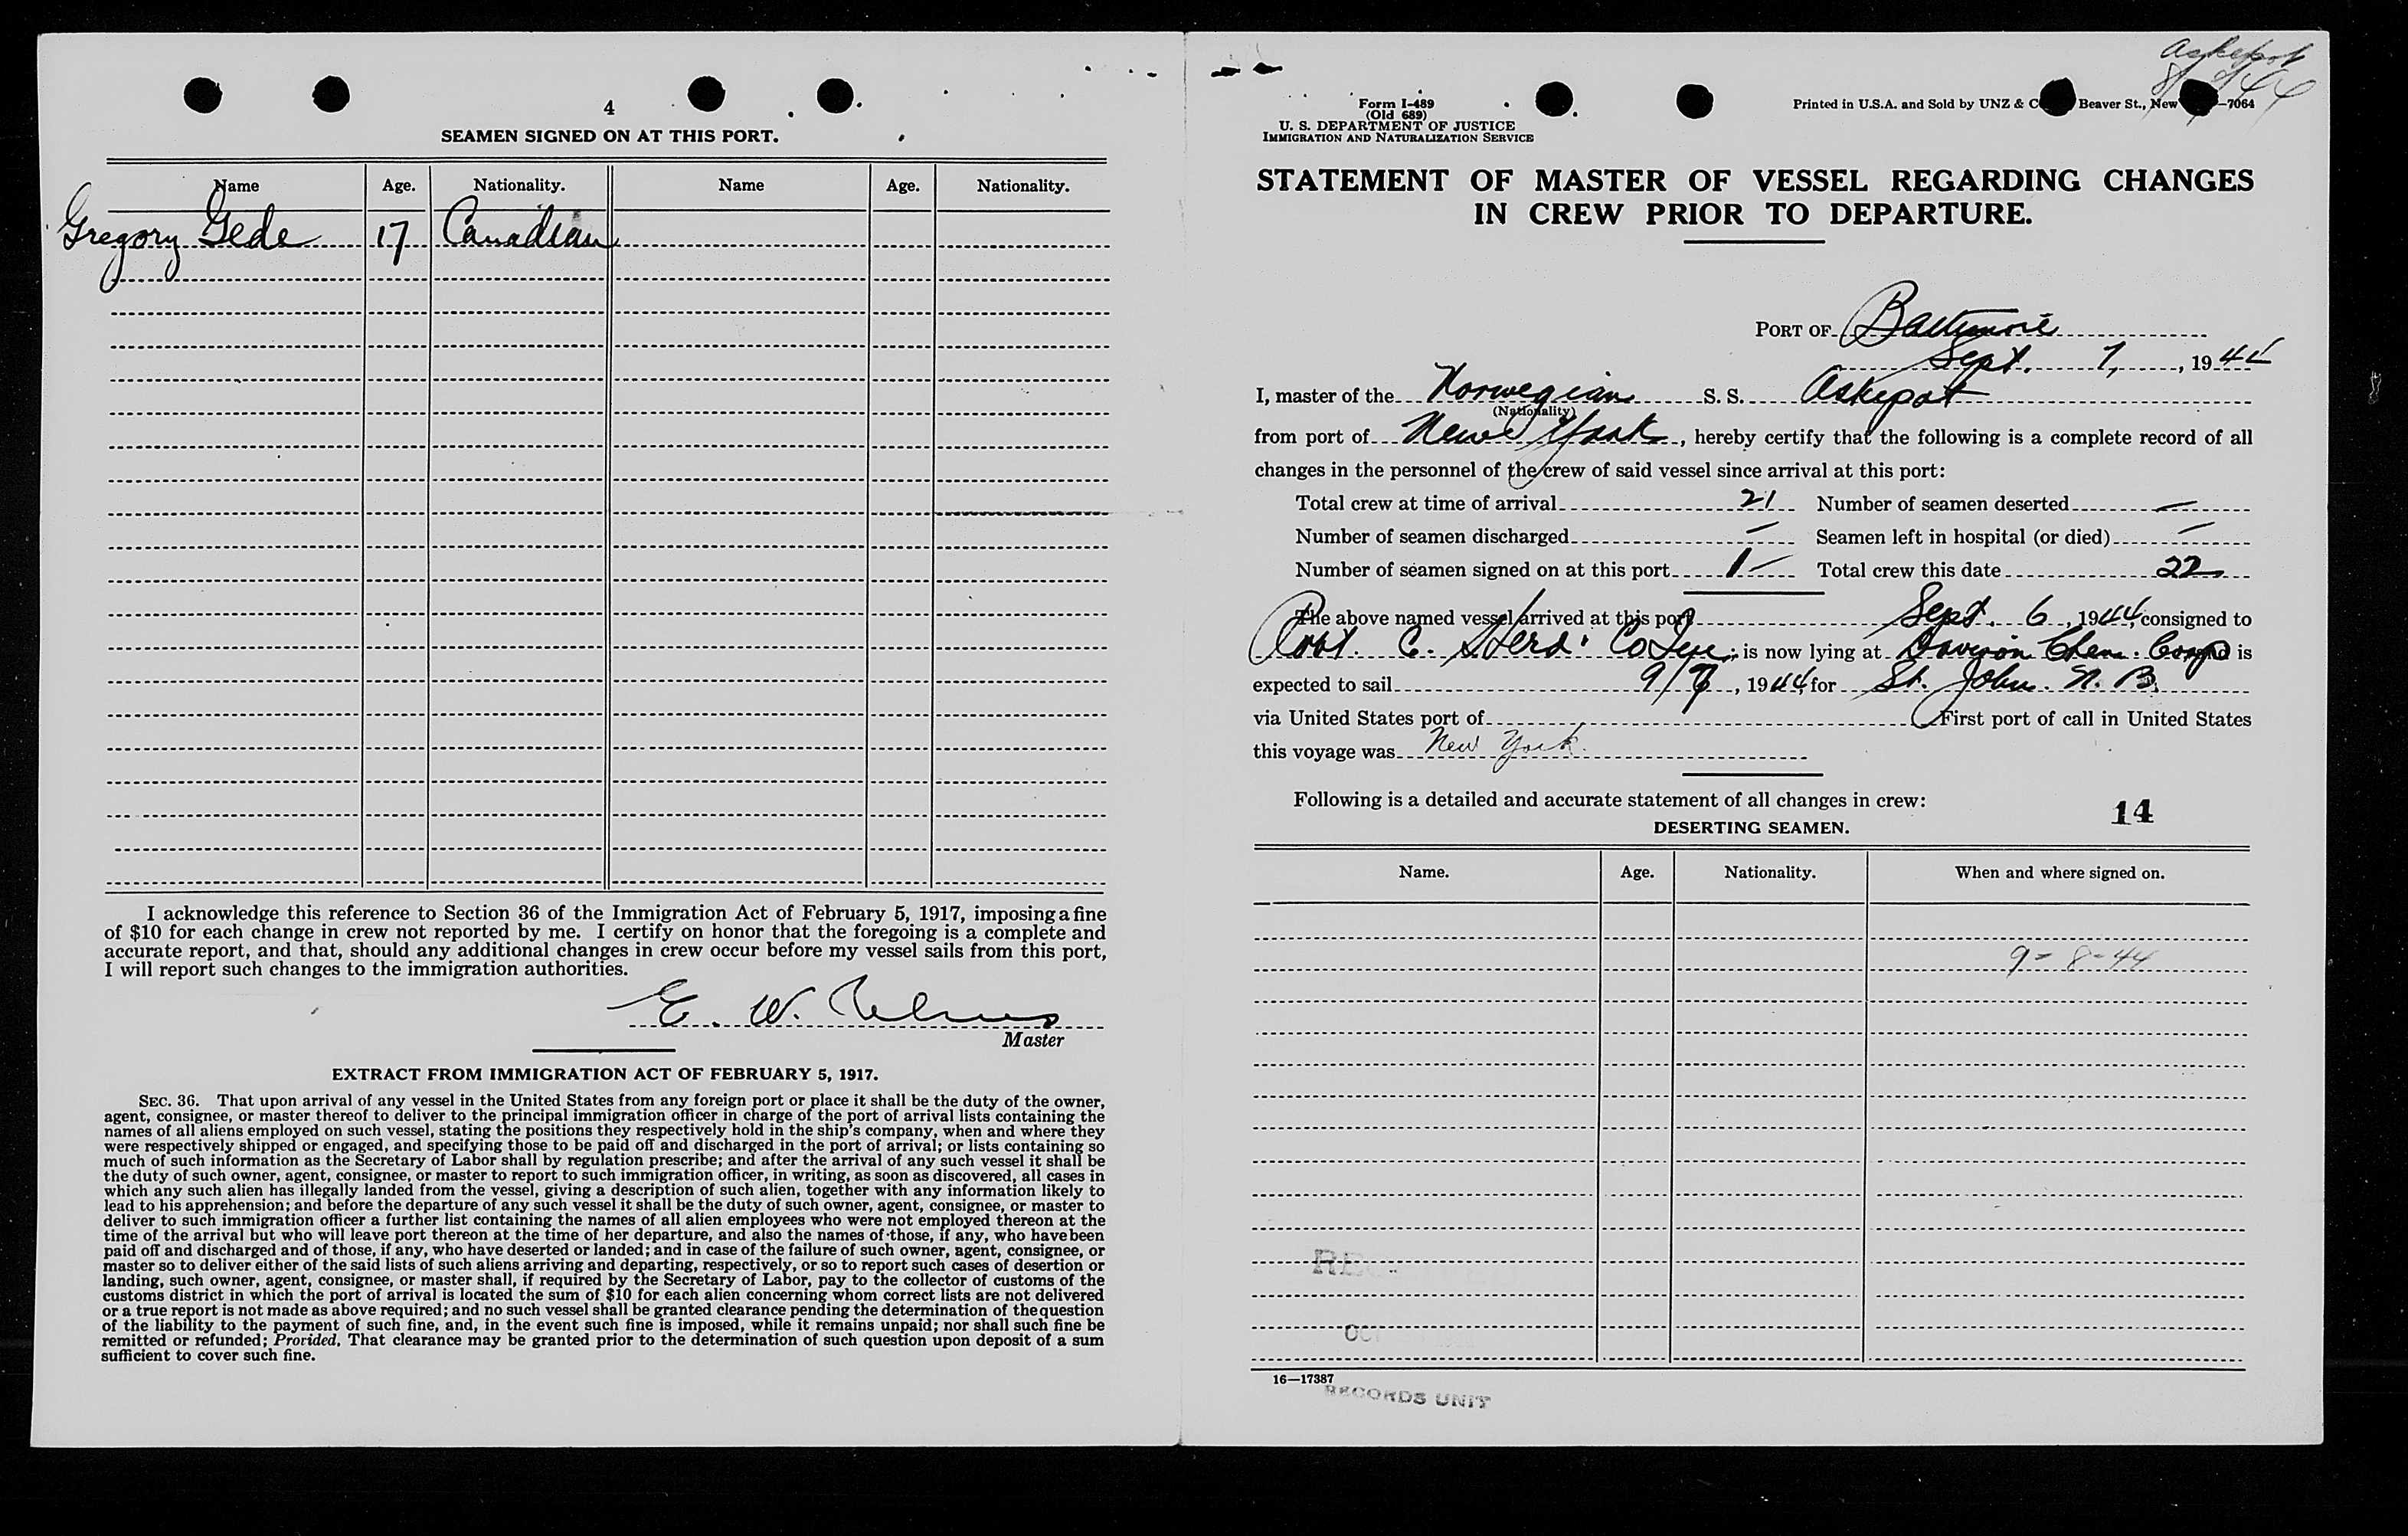 4
SEAMEN SIGNED ON AT THIS PORT.
Name Age. Nationality. Name Age. Nationality.
Gregory Gede 17 Canadian
I acknowledge this reference to Section 36 of the Immigration Act of February 5, 1917, imposing a fine
of $10 for each change in crew not reported by me. I certify on honor that the foregoing is a complete and
accurate report, and that, should any additional changes in crew occur before my vessel sails from this port,
I will report such changes to the immigration authorities.
E. W.
Master
EXTRACT FROM IMMIGRATION ACT OF FEBRUARY 5, 1917.
SEC. 36. That upon arrival of any vessel in the United States from any foreign port or place it shall be the duty of the owner,
agent, consignee, or master thereof to deliver to the principal immigration officer in charge of the port of arrival lists containing the
names of all aliens employed on such vessel, stating the positions they respectively hold in the ship's company, when and where they
were respectively shipped or engaged, and specifying those to be paid off and discharged in the port of arrival; or lists containing so
much of such information as the Secretary of Labor shall by regulation prescribe; and after the arrival of any such vessel it shall be
the duty of such owner, agent, consignee, or master to report to such immigration officer, in writing, as soon as discovered, all cases in
which any such alien has illegally landed from the vessel, giving a description of such alien, together with any information likely to
lead to his apprehension; and before the departure of any such vessel it shall be the duty of such owner, agent, consignee, or master to
deliver to such immigration officer a further list containing the names of all alien employees who were not employed thereon at the
time of the arrival but who will leave port thereon at the time of her departure, and also the names of those, if any, who have been
paid off and discharged and of those, if any, who have deserted or landed; and in case of the failure of such owner, agent, consignee, or
master so to deliver either of the said lists of such aliens arriving and departing, respectively, or so to report such cases of desertion or
landing, such owner, agent, consignee, or master shall, if required by the Secretary of Labor, pay to the collector of customs of the
customs district in which the port of arrival is located the sum of $10 for each alien concerning whom correct lists are not delivered
or a true report is not made as above required; and no such vessel shall be granted clearance pending the determination of the question
of the liability to the payment of such fine, and, in the event such fine is imposed, while it remains unpaid; nor shall such fine be
remitted or refunded; Provided, That clearance may be granted prior to the determination of such question upon deposit of a sum
sufficient to cover such fine.
Askepot
Form I-489
(Old 689)
U. S. DEPARTMENT OF JUSTICE
IMMIGRATION AND NATURALIZATION SERVICE
Printed in U.S.A. and Sold by UNZ & C Beaver St., New —7064
STATEMENT OF MASTER OF VESSEL REGARDING CHANGES
IN CREW PRIOR TO DEPARTURE.
PORT OF Baltimore
Sept. 7, , 1944
I, master of the Norwegian S. S. Askepot
(Nationality)
from port of New York, hereby certify that the following is a complete record of all
changes in the personnel of the crew of said vessel since arrival at this port:
Total crew at time of arrival 21 Number of seamen deserted —
Number of seamen discharged — Seamen left in hospital (or died) —
Number of seamen signed on at this port 1 — Total crew this date 22
The above named vessel arrived at this port Sept. 6, 1944, consigned to
Robt. C. Herd & Co Inc; is now lying at Davison Chem. Corp and is
expected to sail 9/7, 1944, for St. John. N. B.
via United States port of First port of call in United States
this voyage was New York.
Following is a detailed and accurate statement of all changes in crew:
14
DESERTING SEAMEN.
Name. Age. Nationality. When and where signed on.
9-8-44
16—17387
RECORDS UNIT